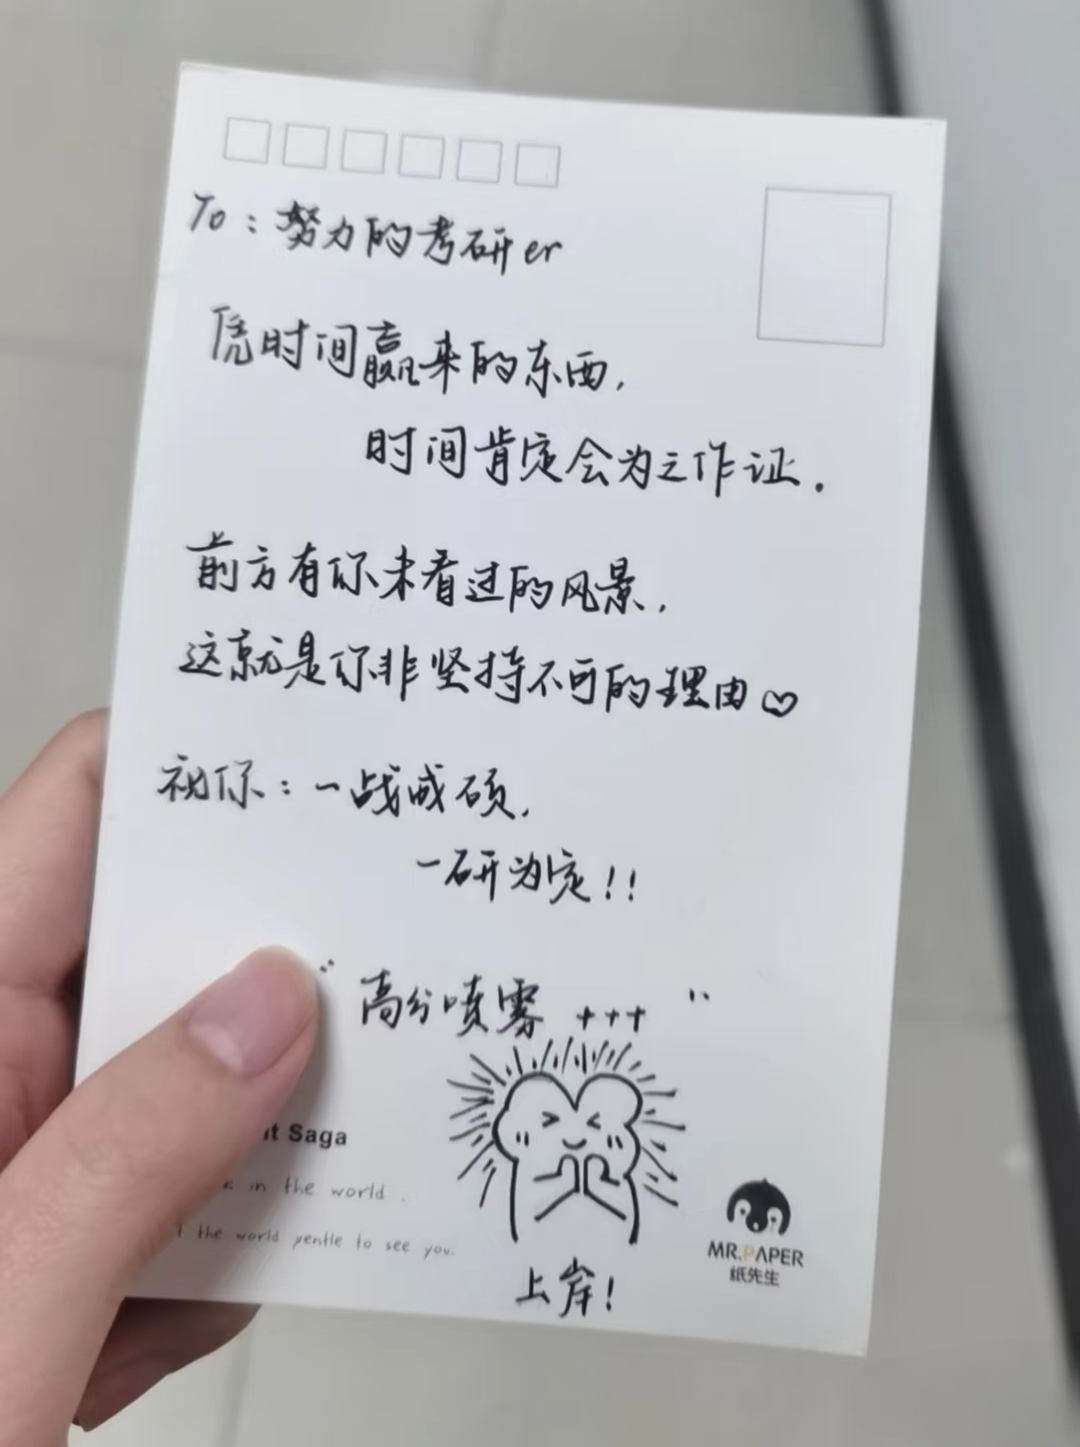 To：努力的考研er
凭时间赢来的东西，
时间肯定会为之作证．
前方有你未看过的风景，
这就是你非坚持不可的理由♡
祝你：一战成硕，
一研为定！！
高分喷雾 +++
t Saga
in the world .
the world gentle to see you.
MR.PAPER
紙先生
上岸！